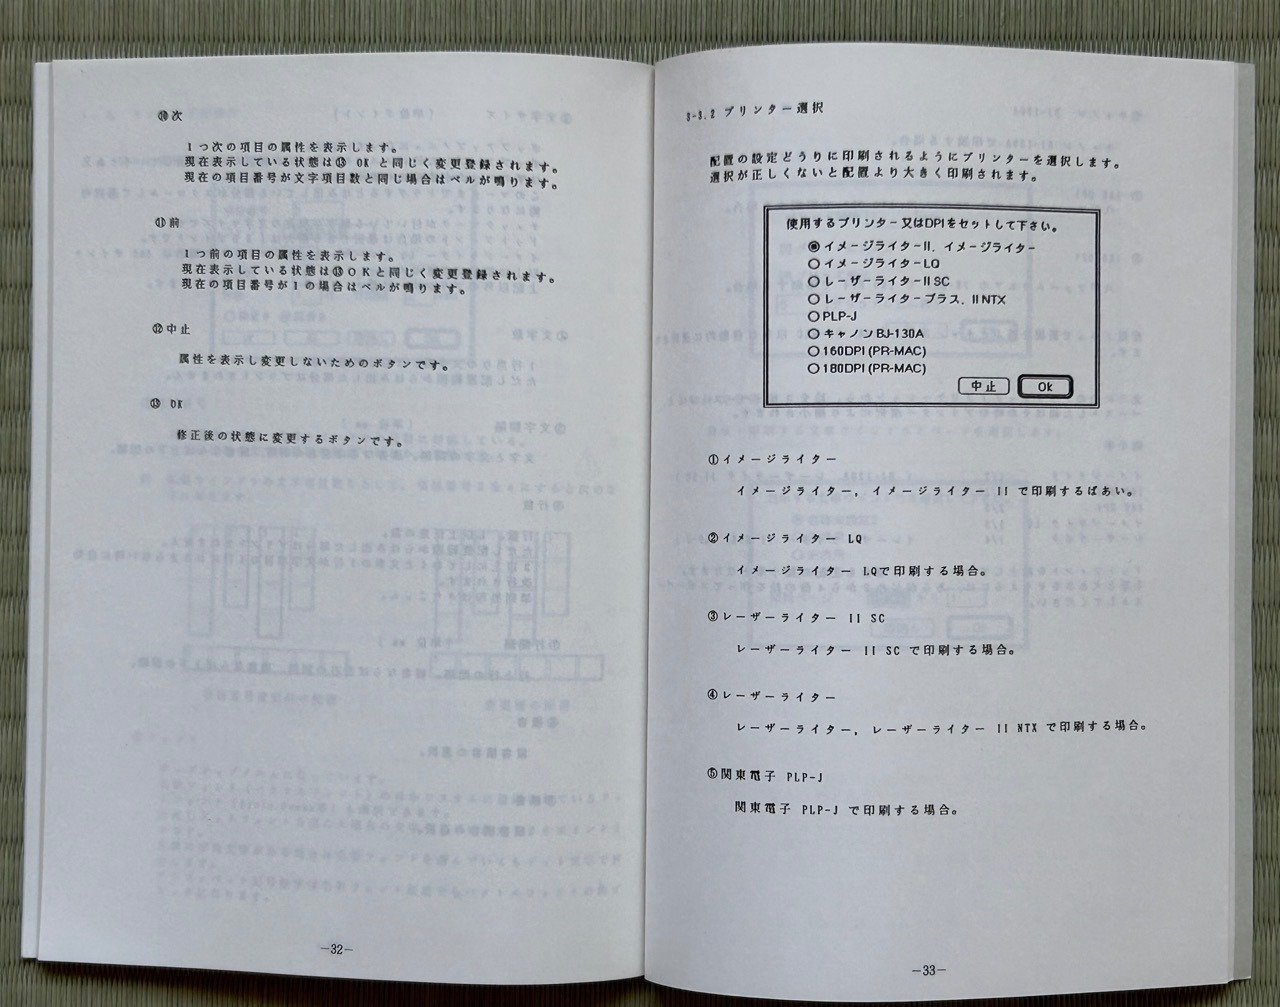 ⑩次
1つ次の項目の属性を表示します。
現在表示している状態は⑬ OK と同じく変更登録されます。
現在の項目番号が文字項目数と同じ場合はベルが鳴ります。
⑪前
1つ前の項目の属性を表示します。
現在表示している状態は⑬OKと同じく変更登録されます。
現在の項目番号が1の場合はベルが鳴ります。
⑫中止
属性を表示し変更しないためのボタンです。
⑬ OK
修正後の状態に変更するボタンです。
－32－
3-3.2 プリンター選択
配置の設定どうりに印刷されるようにプリンターを選択します。
選択が正しくないと配置より大きく印刷されます。
使用するプリンター又はDPIをセットして下さい。
◉イメージライターII, イメージライター
○イメージライターLQ
○レーザーライターII SC
○レーザーライタープラス, II NTX
○PLP-J
○キャノンBJ-130A
○160DPI (PR-MAC)
○180DPI (PR-MAC)
中止 Ok
①イメージライター
イメージライター, イメージライター II で印刷するばあい。
②イメージライター LQ
イメージライター LQで印刷する場合。
③レーザーライター II SC
レーザーライター II SC で印刷する場合。
④レーザーライター
レーザーライター, レーザーライター II NTX で印刷する場合。
⑤関東電子 PLP-J
関東電子 PLP-J で印刷する場合。
－33－